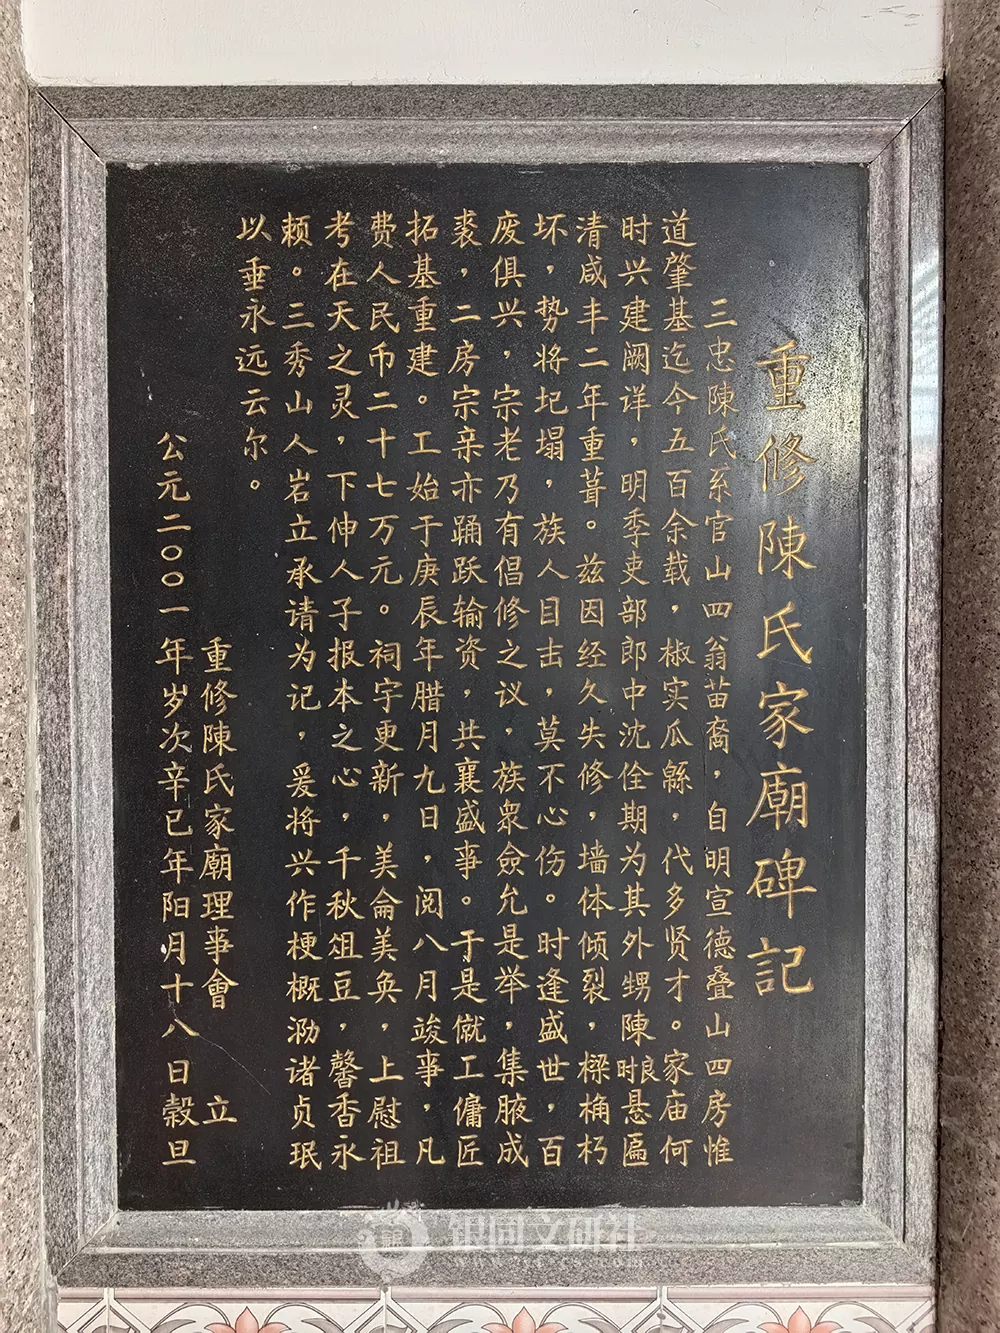 重修陳氏家廟碑記
三忠陳氏系官山四翁苗裔，自明宣德叠山四房惟
道肇基迄今五百余载，椒实瓜緜，代多贤才。家庙何
时兴建阙详，明季吏部郎中沈佺期为其外甥陳時良悬匾
清咸丰二年重葺。兹因经久失修，墙体倾裂，樑桷朽
坏，势将圮塌，族人目击，莫不心伤。时逢盛世，百
废俱兴，宗老乃有倡修之议，族衆僉允是举，集腋成
裘，二房宗亲亦踊跃输资，共襄盛事。于是僦工傭匠
拓基重建。工始于庚辰年腊月九日，阅八月竣事，凡
费人民币二十七万元。祠宇更新，美侖美奂，上慰祖
考在天之灵，下伸人子报本之心，千秋俎豆，馨香永
赖。三秀山人岩立承请为记，爰将兴作梗概泐诸贞珉
以垂永远云尔。
重修陳氏家廟理事會 立
公元二〇〇一年岁次辛巳年阳月十八日榖旦
银同文研社